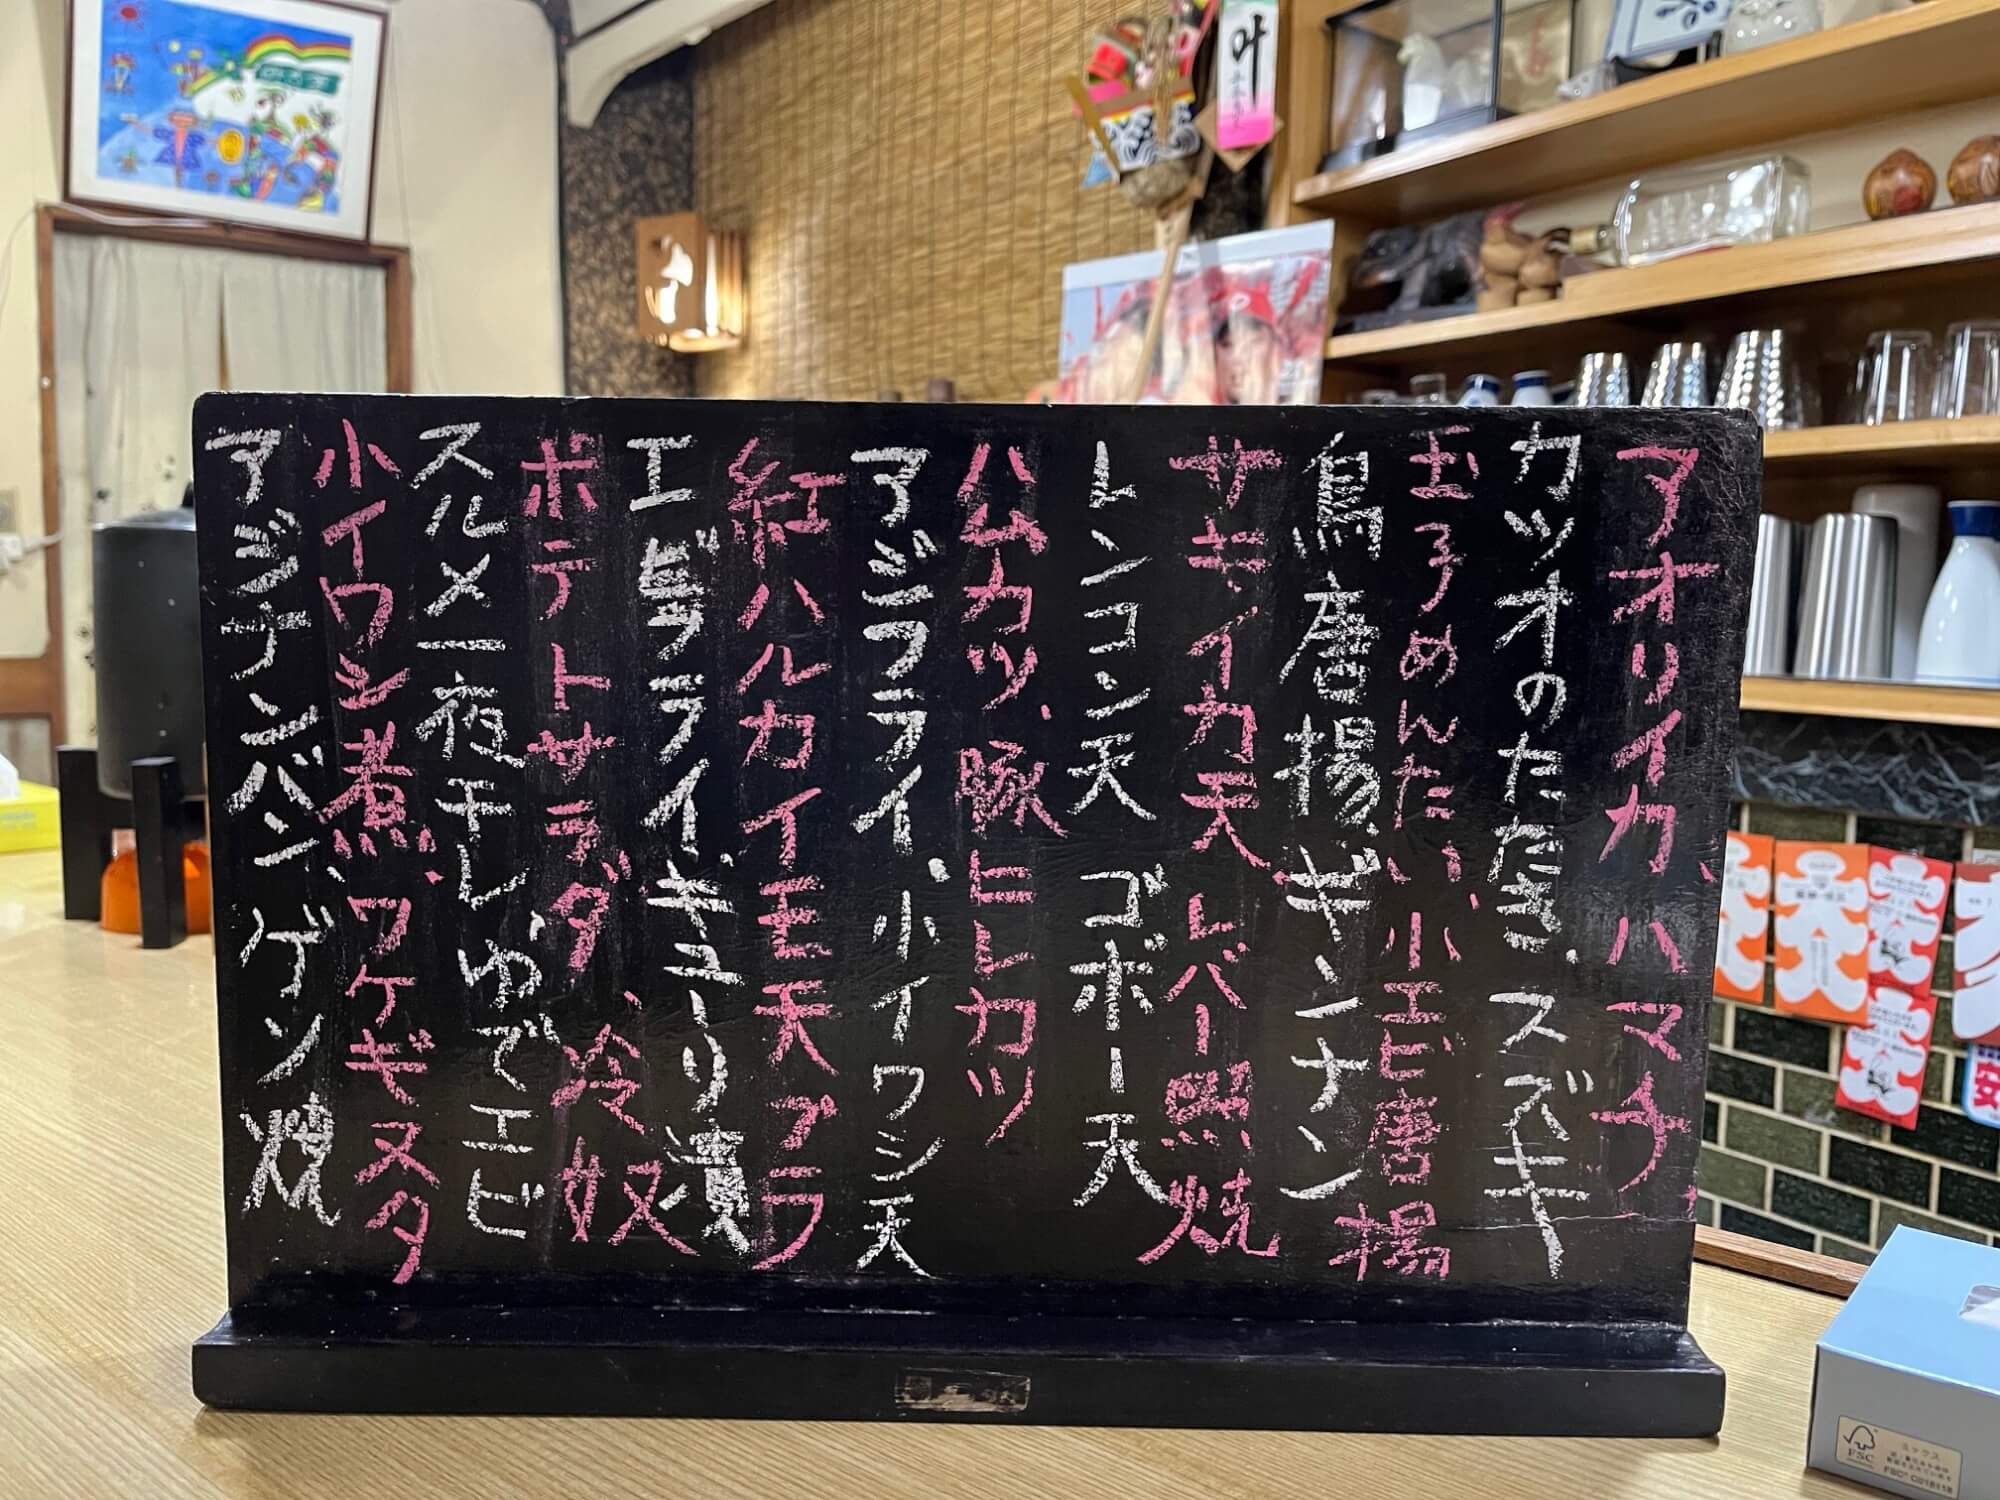 アオリイカ、ハマチ
カツオのたたき、スズキ
玉子めんたい、小エビ唐揚
鳥唐揚、ギンナン
サキイカ天、レバー照焼
レンコン天 ゴボー天
ハムカツ、豚ヒレカツ
アジフライ、小イワシ天
紅ハルカイモ天プラ
エビフライ、キューリ漬
ポテトサラダ、冷奴
スルメ一夜干し、ゆでエビ
小イワシ煮、ワケギヌタ
アジナンバン、ゲソ焼
叶
ミックス
FSC